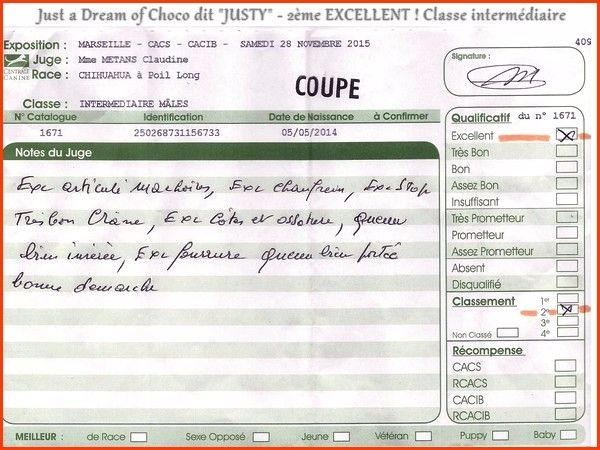 Just a Dream of Choco dit "JUSTY" - 2ème EXCELLENT ! Classe intermédiaire
Exposition : MARSEILLE - CACS - CACIB - SAMEDI 28 NOVEMBRE 2015
409
CENTRALE CANINE
Juge : Mme METANS Claudine
Race : CHIHUAHUA à Poil Long
COUPE
Signature :
Classe : INTERMEDIAIRE MÂLES
N° Catalogue Identification Date de Naissance à Confirmer
1671 250268731156733 05/05/2014
Notes du Juge
Exc articulé machoires, Exc chanfrein, Exc Stop
Tres bon Crâne, Exc Côtes et ossature, queue
bien insérée, Exc fourrure queue bien portée
bonne démarche
Qualificatif du n° 1671
Excellent
Très Bon
Bon
Assez Bon
Insuffisant
Très Prometteur
Prometteur
Assez Prometteur
Absent
Disqualifié
Classement 1er
2e
3e
Non Classé 4e
Récompense
CACS
RCACS
CACIB
RCACIB
MEILLEUR : de Race Sexe Opposé Jeune Vétéran Puppy Baby